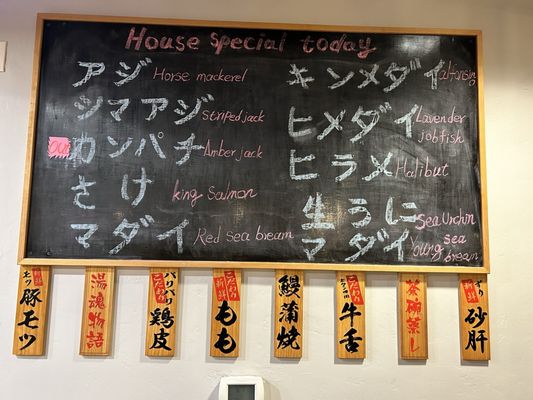 House special today
アジ Horse mackerel
ツマアジ Striped jack
Out カンパチ Amber jack
さけ king Salmon
マダイ Red sea bream
キンメダイ
ヒメダイ Lavender jobfish
ヒラメ Halibut
生うに Sea Urchin
マダイ Young sea bream
豚モツ
湯魂物語
パリパリ 鶏皮
こだわり 新鮮 もも
鰻蒲焼
牛舌
茶碗蒸し
砂肝